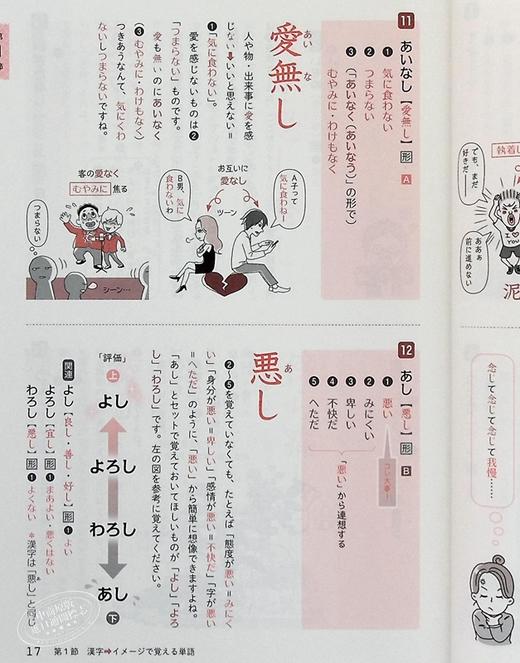 11 あいなし【愛無し】形 A
❶ 気に食わない
❷ つまらない
❸（「あいなく（あいなう）」の形で）
むやみに・わけもなく
愛無し
あい な
人や物・出来事に愛を感
じない➡いいと思えない＝
❶「気に食わない」。
愛を感じないものは❷
「つまらない」ものです。
愛も無いのにあいなく
（❸むやみに・わけもなく）
つきあうなんて、気にくわ
ないしつまらないですね。
お互いに
愛なし
A子って
気に食わねー
B男、気に
食わないわ
ツーン
客の愛なく
むやみに 焦る
つまらない
シーン…
12 あし【悪し】形 B
❶ 悪い
コレ大事！
❷ みにくい
❸ 卑しい
❹ 不快だ
❺ へただ
「悪い」から連想する
悪し
あ
❷〜❺を覚えていなくても、たとえば「態度が悪い＝みにく
い」「身分が悪い＝卑しい」「感情が悪い＝不快だ」「字が悪い
＝へただ」のように、「悪い」から簡単に想像できますよね。
「あし」とセットで覚えておいてほしいものが「よし」「よろ
し」「わろし」です。左の図を参考に覚えてください。
「評価」
上
よし
よろし
わろし
あし
下
関連
よし【良し・善し・好し】形 ❶よい
よろし【宜し】形 ❶まあよい・悪くはない
わろし【悪し】形 ❶よくない ＊漢字は「悪し」と同じ
17 第1節 漢字➡イメージで覚える単語
執着し
でも、まだ
好きだー
ああぁ
前に進めない
I ♥
YOU
泥
念じて念じて念じて我慢……